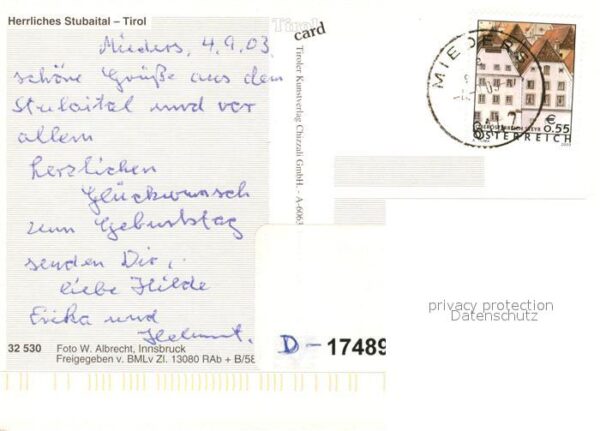 Herrliches Stubaital – Tirol
Mieders, 4.9.03
schöne Grüße aus dem
Stubaital und vor
allem
herzlichen
Glückwunsch
zum Geburtstag
senden Dir,
liebe Hilde
Erika und
Helmut.
32 530 Foto W. Albrecht, Innsbruck
Freigegeben v. BMLv Zl. 13080 RAb + B/58
Tirol
card
Tiroler Kunstverlag Chizzali GmbH. - A-6063
MIEDERS
€ 0.55
ÖSTERREICH
D - 17489
privacy protection
Datenschutz